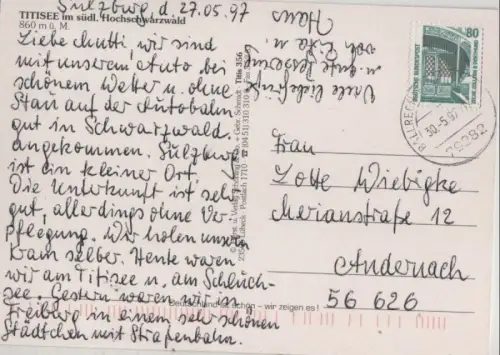 Sulzburg, d. 27.05.97
TITISEE im südl. Hochschwarzwald
860 m ü. M.
Liebe Mutti, wir sind
mit unserem Auto bei
schönem Wetter u. ohne
Stau auf der Autobahn
gut in Schwarzwald
angekommen. Sulzburg
ist ein kleiner Ort.
Die Unterkunft ist sehr
gut, allerdings ohne Ver-
pflegung. Wir holen unsern
Kram selber. Heute waren
wir am Titisee u. am Schluch-
see. Gestern waren wir in
Freiburg in einem sehr schönen
Städtchen mit Straßenbahn.
Viele liebe Grüße
u. gute
von u.
Hans
Titis 356
Gebr. Schmidt
Lübeck Postfach 1710
Deutschland ist schön – wir zeigen es!
80
DEUTSCHE BUNDESPOST
30.-5.97
79282
Frau
Lotte Wiebigke
Merianstraße 12
Andernach
56 626